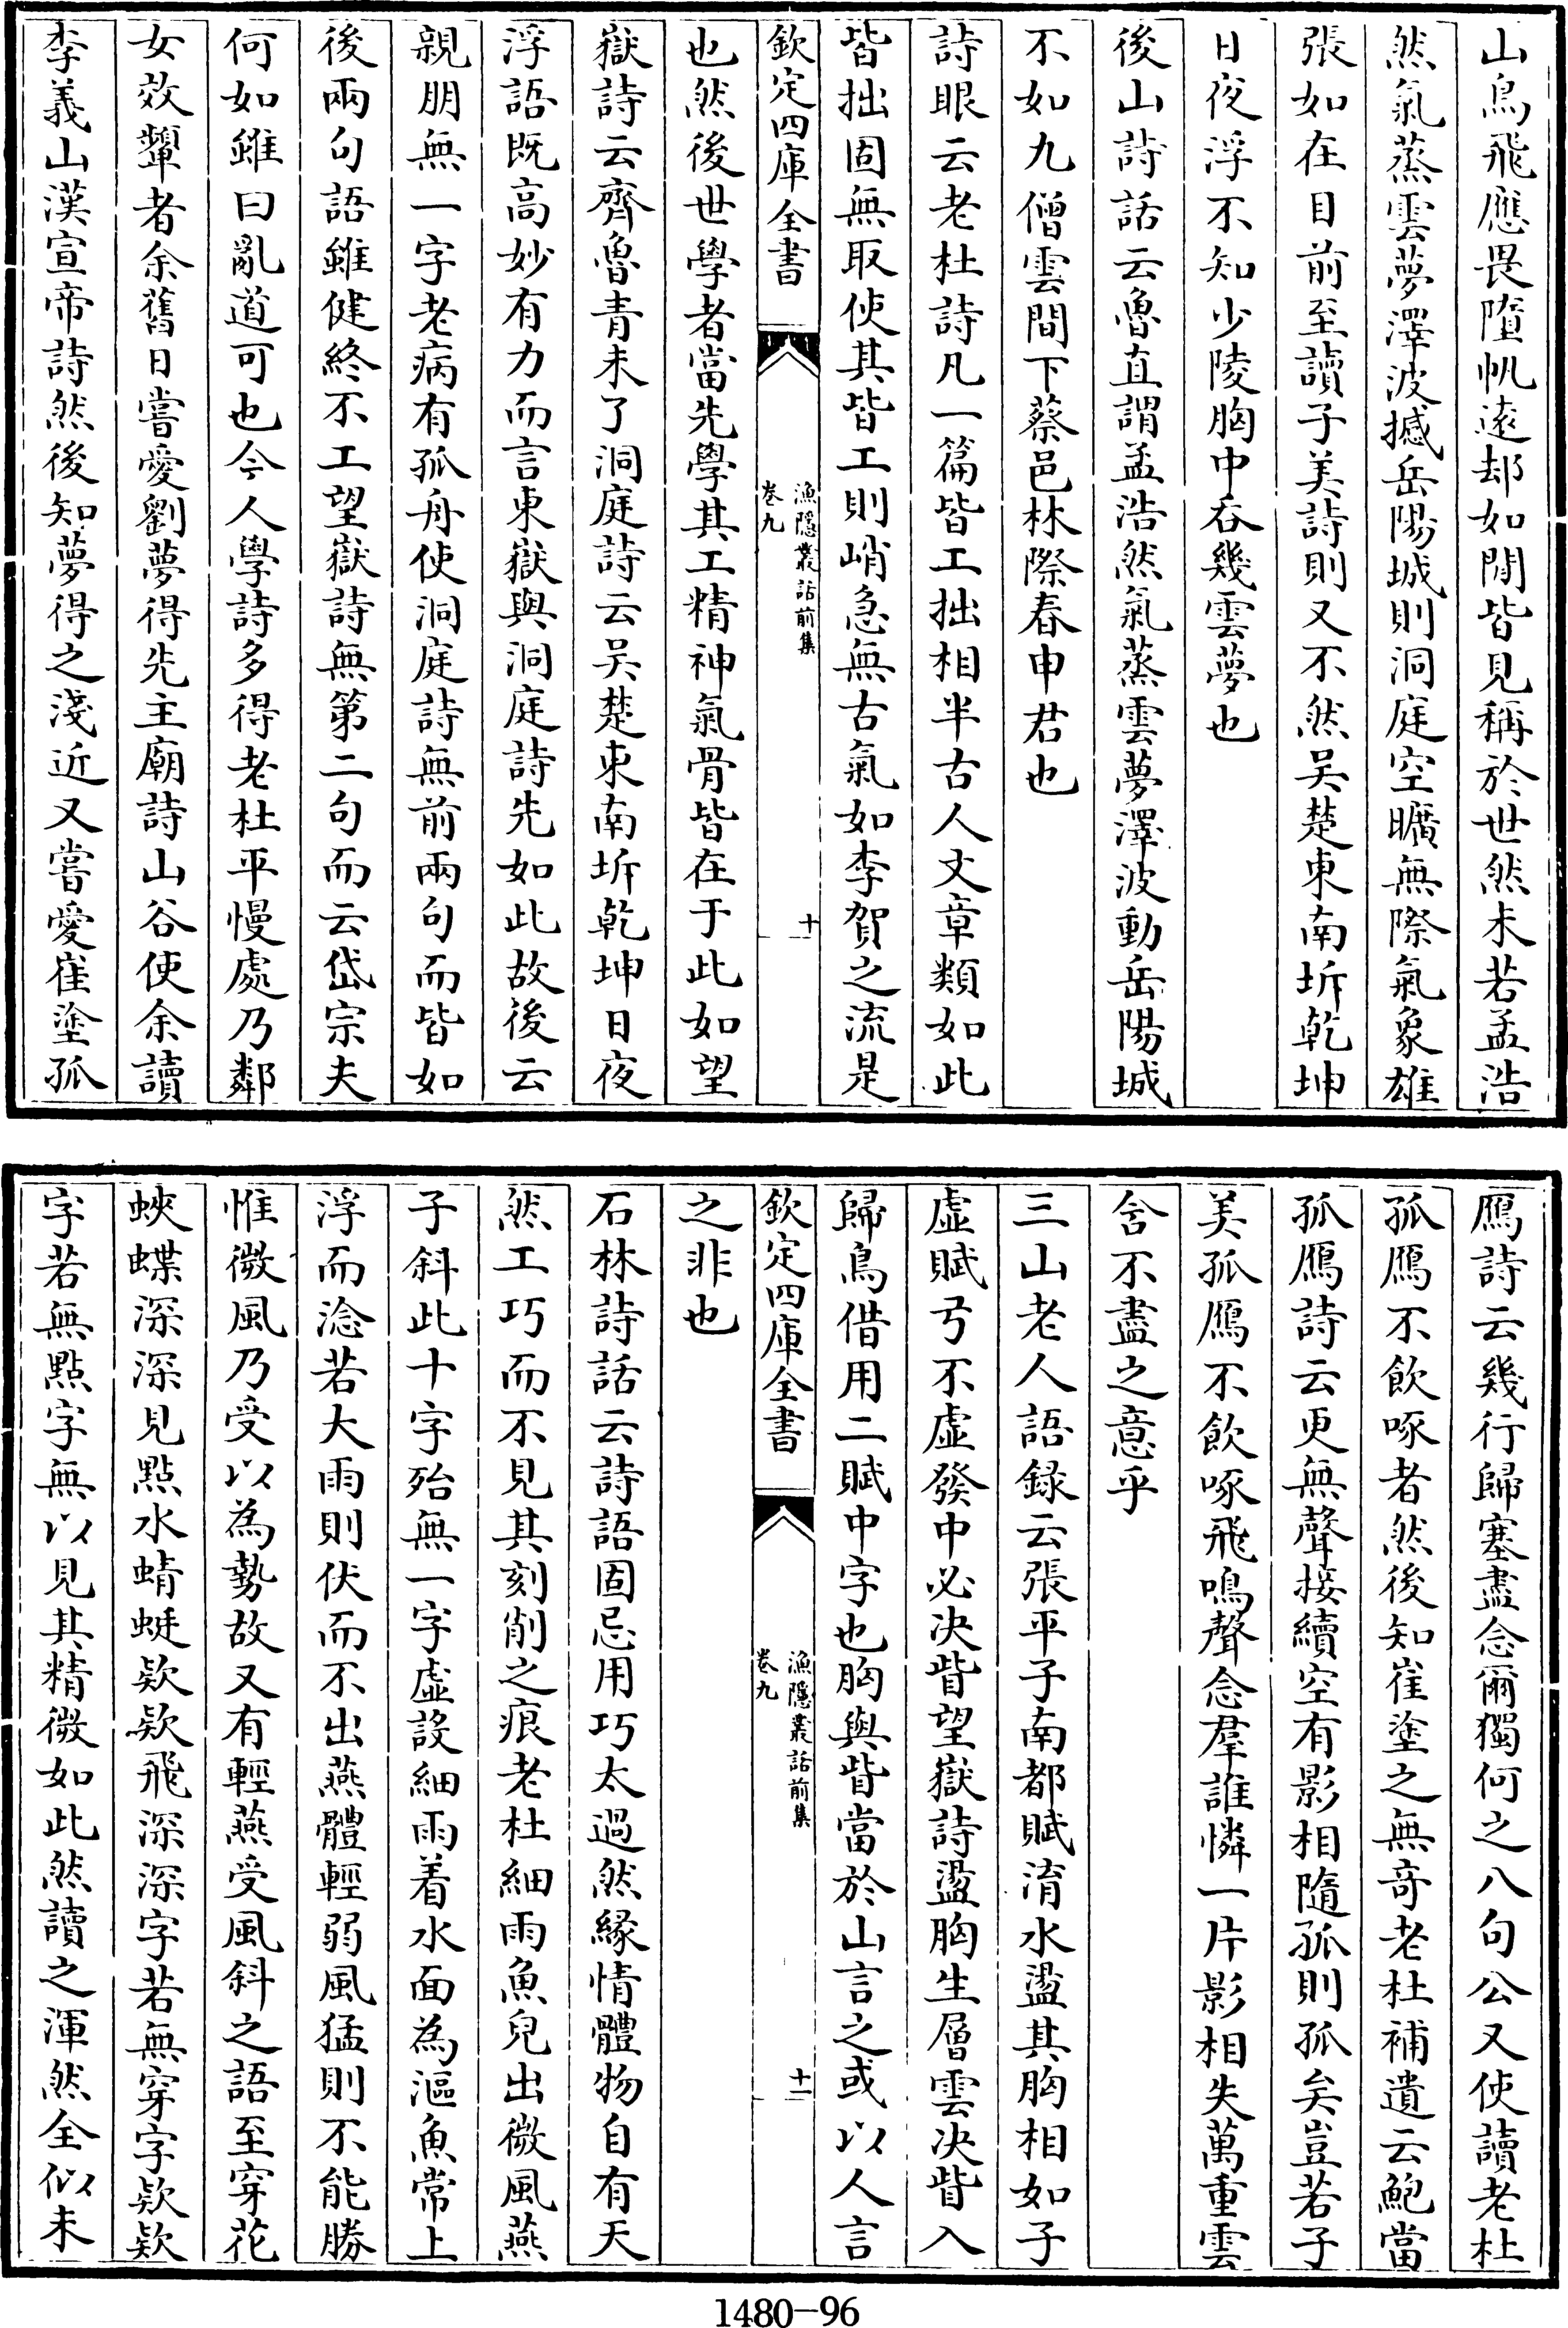 山鳥飛應畏墮帆遠却如閒皆見稱於世然未若孟浩
然氣蒸雲夢澤波撼岳陽城則洞庭空曠無際氣象雄
張如在目前至讀子美詩則又不然吳楚東南坼乾坤
日夜浮不知少陵胸中呑幾雲夢也
後山詩話云魯直謂孟浩然氣蒸雲夢澤波動岳陽城
不如九僧雲間下蔡邑林際春申君也
詩眼云老杜詩凡一篇皆工拙相半古人文章類如此
皆拙固無取使其皆工則峭急無古氣如李賀之流是
欽定四庫全書
漁隱叢話前集
卷九
十
也然後世學者當先學其工精神氣骨皆在于此如望
嶽詩云齊魯青未了洞庭詩云吳楚東南坼乾坤日夜
浮語既高妙有力而言東嶽與洞庭詩先如此故後云
親朋無一字老病有孤舟使洞庭詩無前兩句而皆如
後兩句語雖健終不工望嶽詩無第二句而云岱宗夫
何如雖曰亂道可也今人學詩多得老杜平慢處乃鄰
女效顰者余舊日嘗愛劉夢得先主廟詩山谷使余讀
李義山漢宣帝詩然後知夢得之淺近又嘗愛崔塗孤
鴈詩云幾行歸塞盡念爾獨何之八句公又使讀老杜
孤鴈不飲啄者然後知崔塗之無竒老杜補遺云鮑當
孤鴈詩云更無聲接續空有影相隨孤則孤矣豈若子
美孤鴈不飲啄飛鳴聲念羣誰憐一片影相失萬重雲
含不盡之意乎
三山老人語録云張平子南都賦淯水盪其胸相如子
虛賦弓不虛發中必決眥望嶽詩盪胸生層雲決眥入
歸鳥借用二賦中字也胸與眥當於山言之或以人言
欽定四庫全書
漁隱叢話前集
卷九
十一
之非也
石林詩話云詩語固忌用巧太過然緣情體物自有天
然工巧而不見其刻削之痕老杜細雨魚兒出微風燕
子斜此十字殆無一字虛設細雨着水面為漚魚常上
浮而淰若大雨則伏而不出燕體輕弱風猛則不能勝
惟微風乃受以為勢故又有輕燕受風斜之語至穿花
蛺蝶深深見點水蜻蜓欵欵飛深深字若無穿字欵欵
字若無點字無以見其精微如此然讀之渾然全似未
1480-96